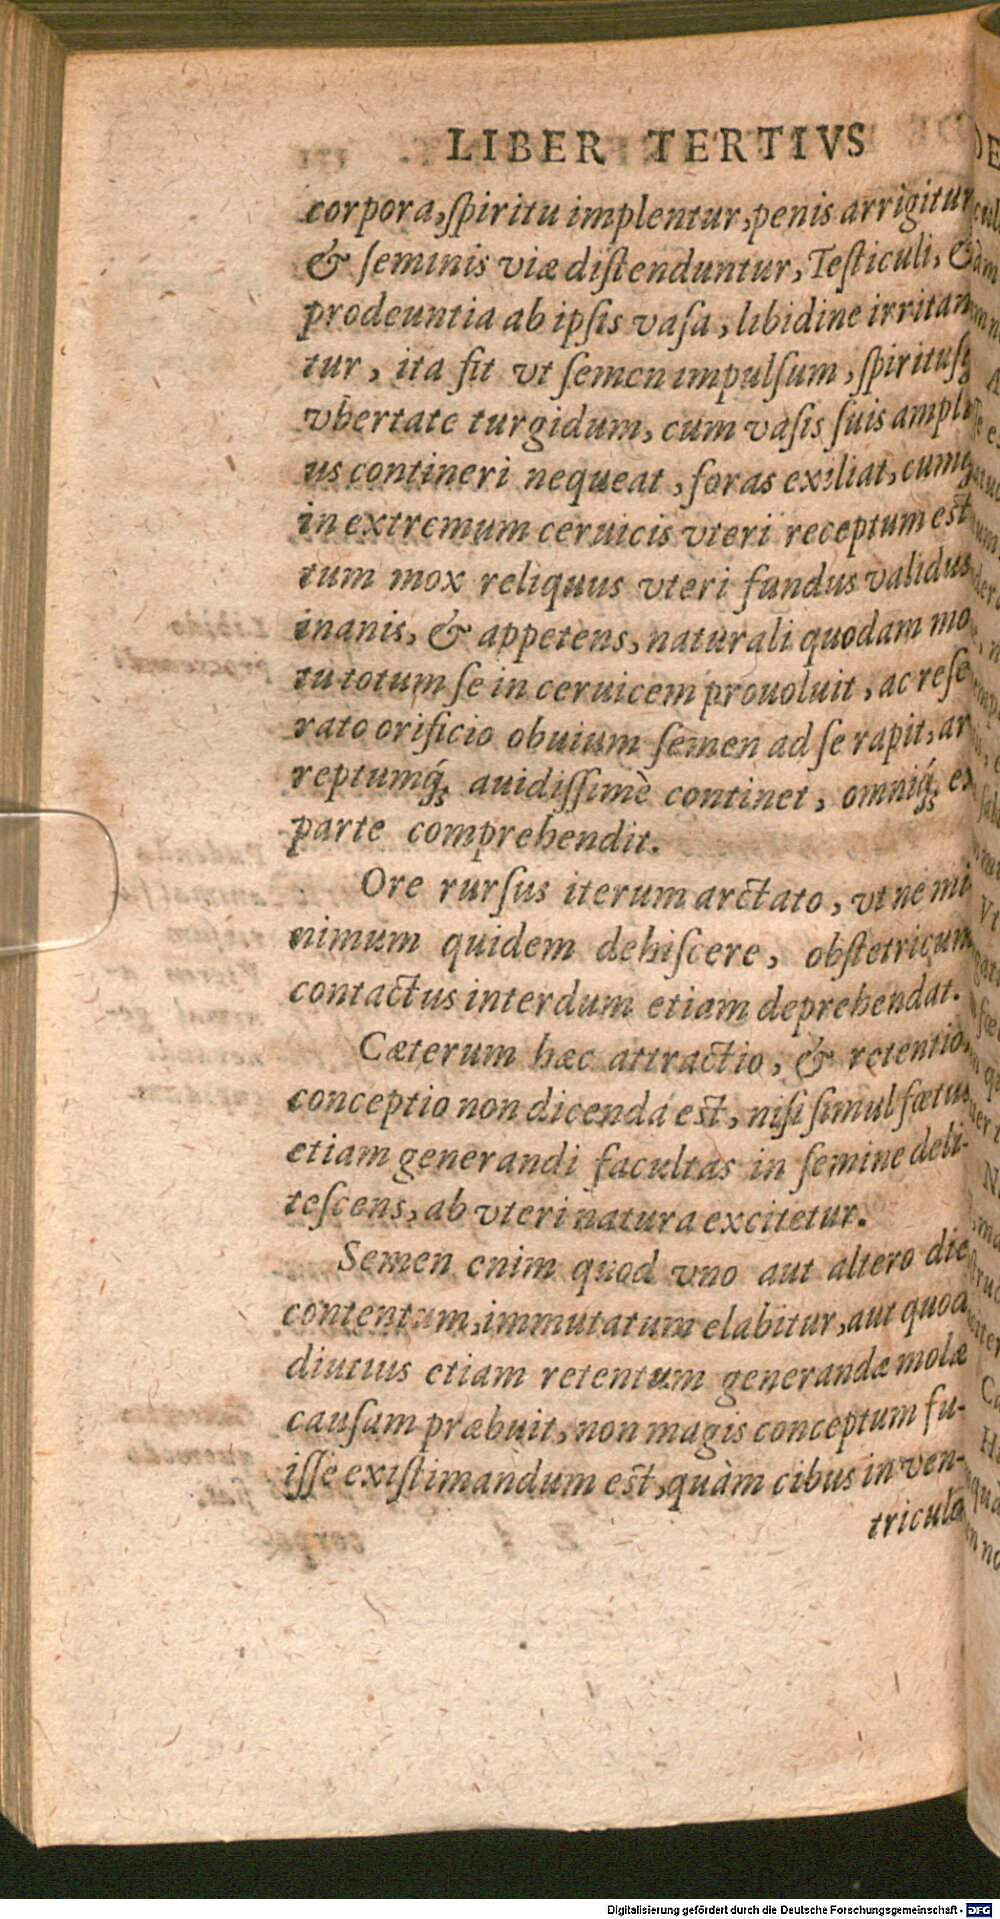 LIBER TERTIVS
corpora, ſpiritu implentur, penis arrigitur
& ſeminis viæ diſtenduntur, Teſticuli, &
prodeuntia ab ipſis vaſa, libidine irritan
tur, ita fit vt ſemen impulſum, ſpirituſq
vbertate turgidum, cum vaſis ſuis ampli
us contineri nequeat, foras exiliat, cumq
in extremum ceruicis vteri receptum est
tum mox reliquus vteri fundus validus
inanis, & appetens, naturali quodam mo
tu totum ſe in ceruicem prouoluit, ac reſe
rato orificio obuium ſemen ad ſe rapit, ar
reptumq́; auidiſſimè continet, omniq́; ex
parte comprehendit.
Ore rurſus iterum arctato, vt ne mi
nimum quidem dehiſcere, obſtetricum
contactus interdum etiam deprehendat.
Cæterum hæc attractio, & retentio,
conceptio non dicenda est, niſi ſimul fœtus
etiam generandi facultas in ſemine deli-
teſcens, ab vteri natura excitetur.
Semen enim quod vno aut altero die
contentum, immutatum elabitur, aut quod
diutius etiam retentum generandæ molæ
cauſam præbuit, non magis conceptum fu-
iſſe exiſtimandum est, quàm cibus in ven-
triculo
Digitalisierung gefördert durch die Deutsche Forschungsgemeinschaft - DFG